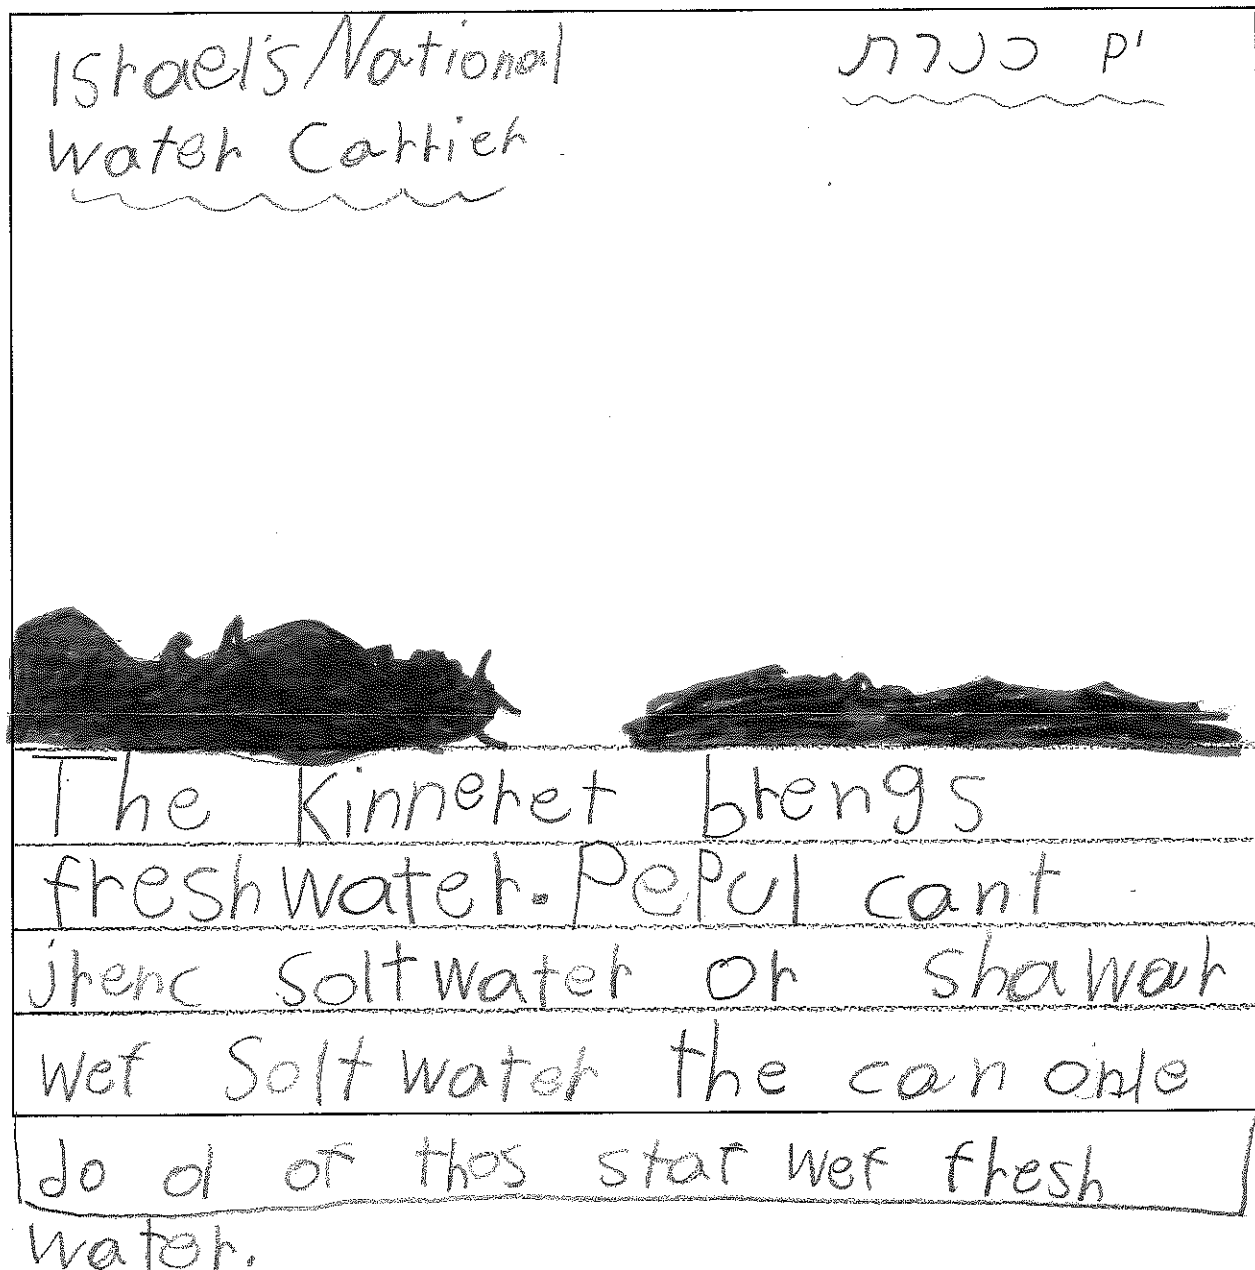 Israel's National
Water Carrier
ים כנרת
The Kinneret brengs
fresh water. Pepul cant
jrenc solt water or shawar
wef Solt water the can onle
do ol of thos staf wef fresh
water.